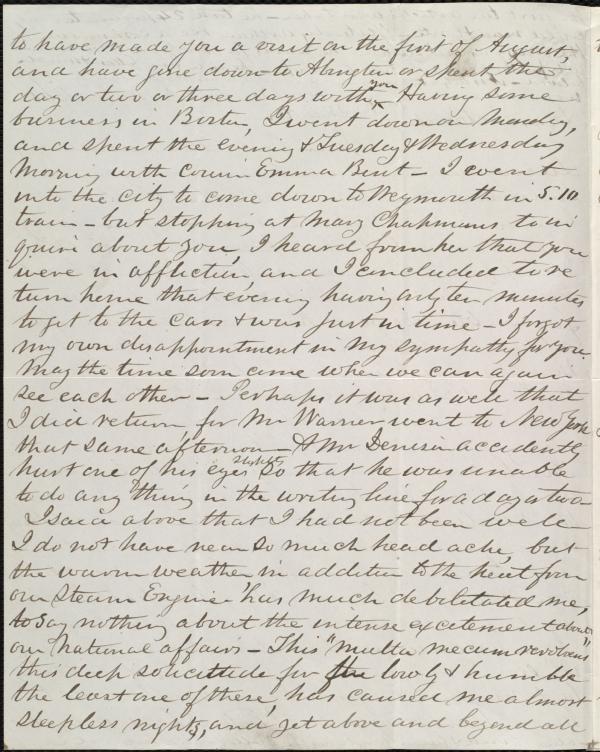 to have made you a visit on the first of August,
and have gone down to Abington or spent the
day or two or three days with you. Having some
business in Boston, I went down on Monday,
and spent the evening & Tuesday & Wednesday
morning with cousin Emma Bent – I went
into the city to come down to Weymouth in 5.10
train – but stopping at Mary Chapmans to in
quire about you, I heard from her that you
were in affliction and I concluded to re
turn home that evening having only ten minutes
to get to the cars & was just in time – I forgot
my own disappointment in my sympathy for you
May the time soon come when we can again
see each other – Perhaps it was as well that
I did return for Mr Warner went to New York
that same afternoon – & Mr Denison accidently
hurt one of his eyes slightly so that he was unable
to do any thing in the writing line for a day or two –
I said above that I had not been well
I do not have near so much head ache, but
the warm weather in addition to the heat from
our Steam Engine has much debilitated me,
to say nothing about the intense excitement about
our National affairs – This "multa mecum revolvens"
this deep solicitude for the lowly & humble
the least one of these, has caused me almost
sleepless nights, and yet above and beyond all